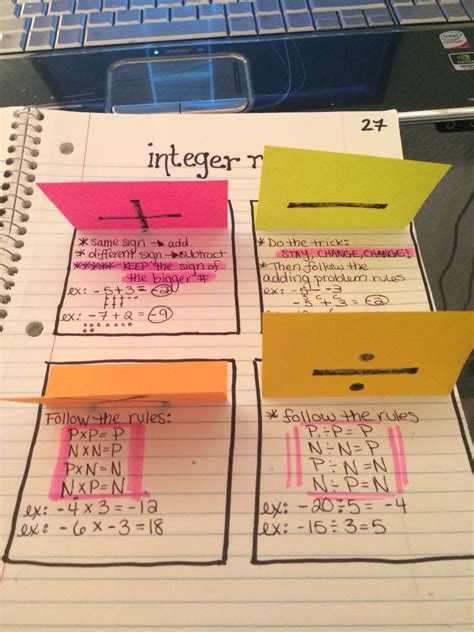 27
integer r
+
* same sign → add
* different sign → subtract
**** KEEP the sign of
the bigger #
ex: -5+3 = -2
ex: -7+2 = -9
—
* Do the trick:
STAY, CHANGE, CHANGE!
* Then follow the
adding problem rules
ex: -5 - -3
= -2
Follow the rules:
P×P= P
N×N= P
P×N= N
N×P= N
ex: -4 × 3 = -12
ex: -6 × -3 = 18
÷
* follow the rules
P÷P= P
N÷N= P
P÷N= N
N÷P= N
ex: -20÷5= -4
ex: -15÷3= 5